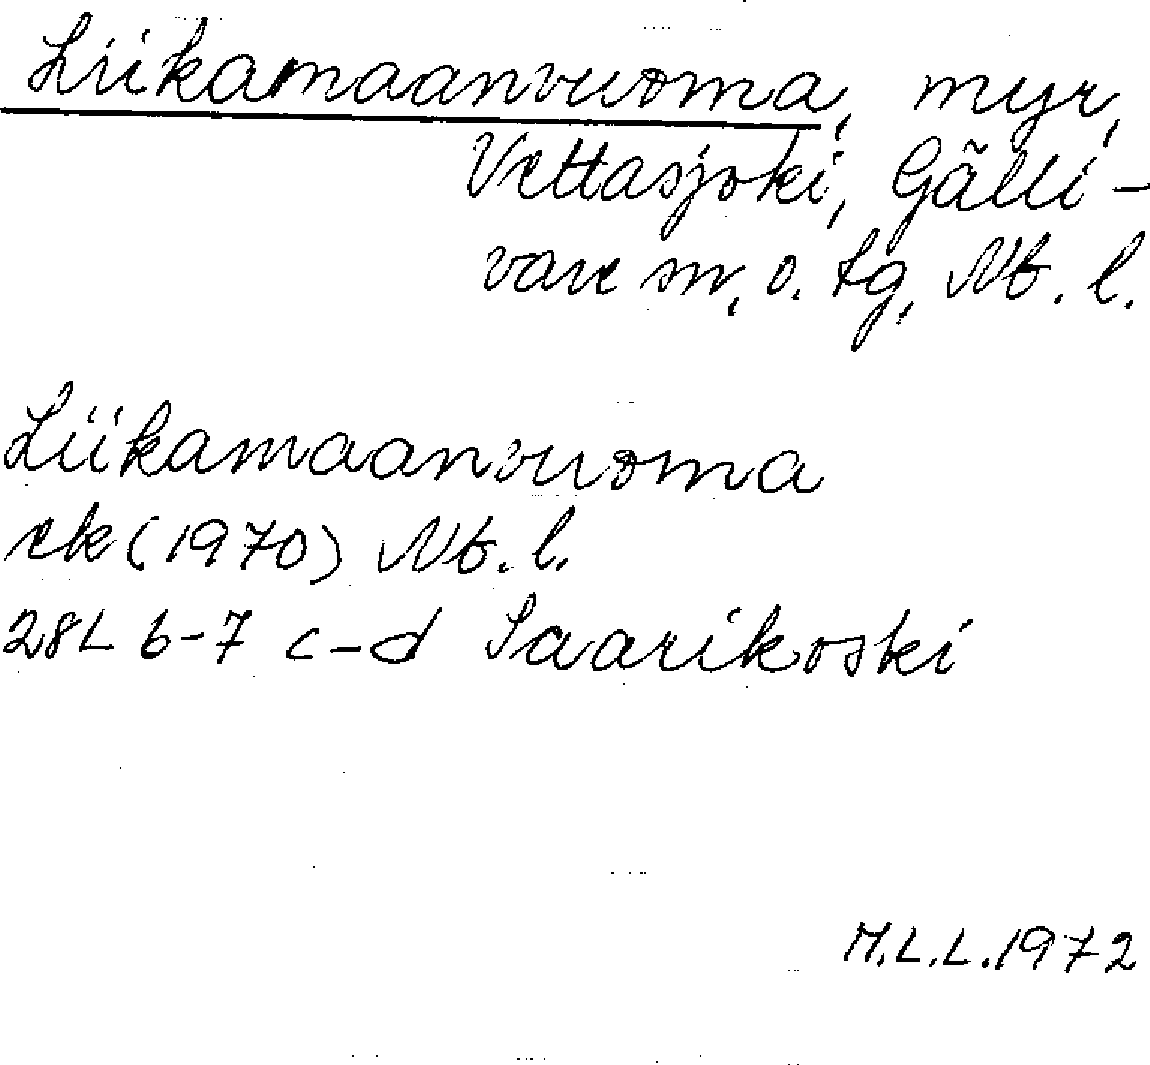 Liikamaanvuoma, myr,
Vettasjoki, Gälli-
vare sn, o. tg, Nb. l.
Liikamaanvuoma
ek (1970) Nb. l.
28L 6-7 c-d Saarikoski
M.L.L. 1972